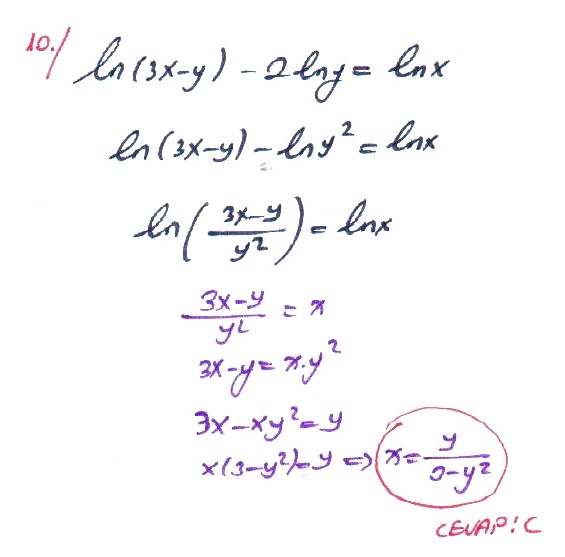 10./ ln(3x-y) - 2lny = lnx
ln(3x-y) - lny² = lnx
ln((3x-y)/y²) = lnx
(3x-y)/y² = x
3x-y = x.y²
3x-xy² = y
x(3-y²) = y => x = y/(3-y²)
CEVAP: C